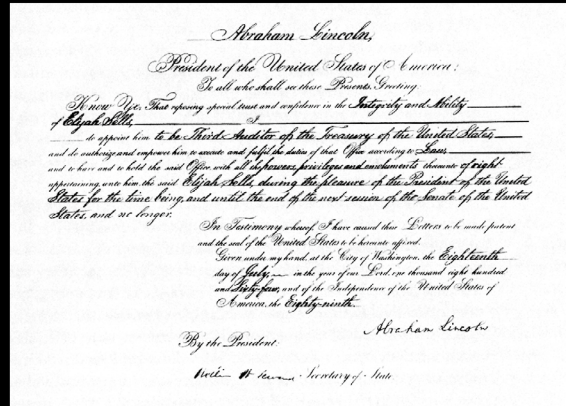 Abraham Lincoln,
President of the United States of America:
To all who shall see these Presents, Greeting:
Know Ye, That reposing special trust and confidence in the Integrity and Ability
of Elijah Sells, I
do appoint him to be Third Auditor of the Treasury of the United States,
and do authorize and empower him to execute and fulfil the duties of that Office according to Law,
and to have and to hold the said Office with all the powers, privileges and emoluments thereunto of right
appertaining, unto him the said Elijah Sells, during the pleasure of the President of the United
States for the time being, and until the end of the next session of the Senate of the United
States, and no longer.
In Testimony whereof, I have caused these Letters to be made patent
and the seal of the United States to be hereunto affixed.
Given under my hand, at the City of Washington, the Eighteenth
day of July, in the year of our Lord, one thousand eight hundred
and Sixty-four, and of the Independence of the United States of
America, the Eighty-ninth.
Abraham Lincoln
By the President:
William H Seward Secretary of State.